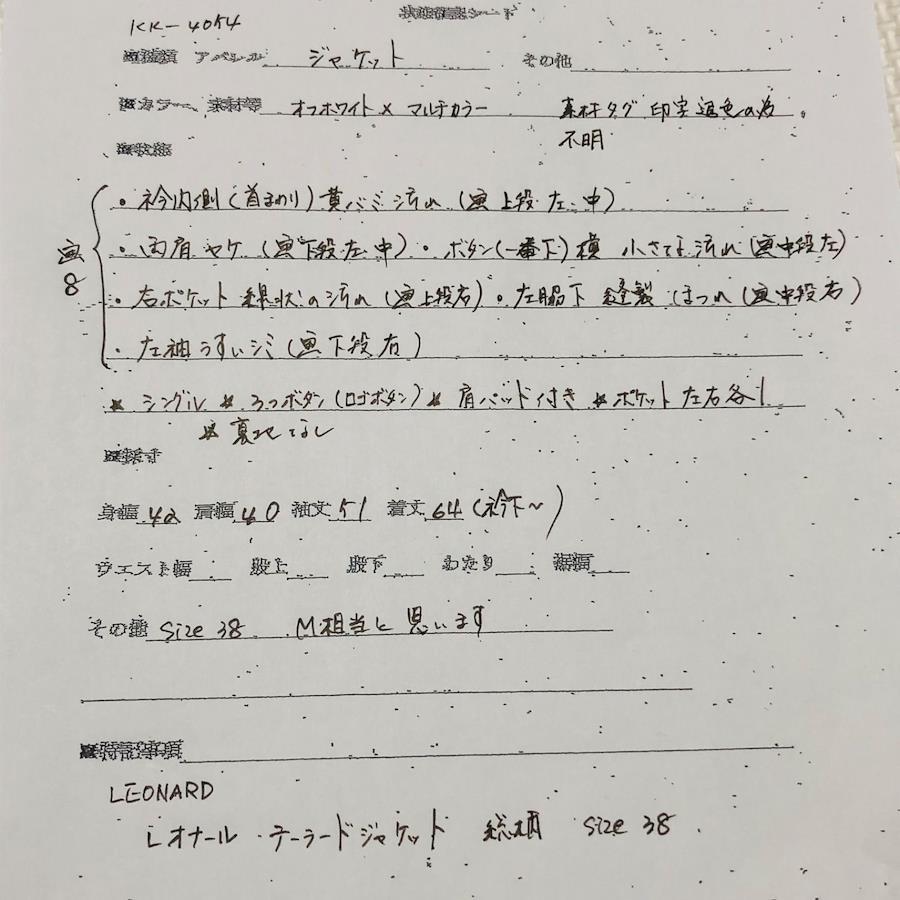 KK-4054
状態確認シート
■種類 アパレル ジャケット その他
■カラー、素材等 オフホワイト×マルチカラー 素材タグ 印字退色の為
不明
■状態
画8
・衿内側(首まわり)黄バミ汚れ(画上段左.中)
・両肩ヤケ(画下段左.中)・ボタン(一番下)横 小さな汚れ(画中段左)
・右ポケット 線状の汚れ(画上段右)・左脇下 縫製ほつれ(画中段右)
・左袖うすいシミ(画下段右)
★シングル ★3つボタン(ロゴボタン)★肩パッド付き ★ポケット左右各1
★裏地なし
■採寸
身幅42 肩幅40 袖丈51 着丈64(衿下~)
ウエスト幅 股上 股下 わたり 裾幅
その他 size 38 M相当と思います
■特記事項
LEONARD
レオナール・テーラードジャケット 総柄 size 38